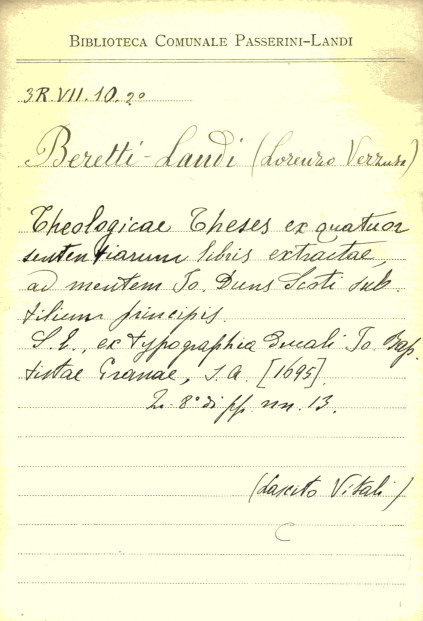 BIBLIOTECA COMUNALE PASSERINI-LANDI
3R.VII.10.20
Beretti-Landi (Lorenzo Verzuso)
Theologicae Theses ex quatuor
sententiarum libris extractae
ad mentem Jo. Duns Scoti sub-
tilium principis.
S. l., ex typographia Ducali Jo. Bap-
tistae Zranae, s. a. [1695].
In 8° di pp. nn. 13.
(Lascito Vitali)